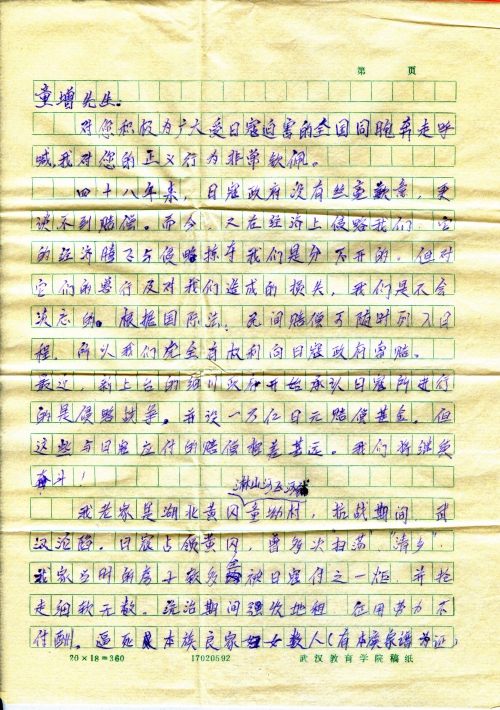 第 页
童增先生。
对您积极为广大受日寇迫害的全国同胞奔走呼
喊,我对您的正义行为非常钦佩。
四十八年来,日寇政府没有丝毫歉意,更
谈不到赔偿。而今,又在经济上侵略我们,它
的经济腾飞与侵略掠夺我们是分不开的。但对
它们的兽行及对我们造成的损失,我们是不会
忘的。根据国际法,民间赔偿可随时列入日
程,所以我们完全有权利向日寇政府索赔。
最近,新上台的细川政府开始承认日寇所进行
的是侵略战争。并设一万亿日元赔偿基金。但
这些与日寇应付的赔偿相差甚远。我们将继续
奋斗!
淋山河
我老家是湖北黄冈村,抗战期间,武
汉沦陷。日寇占领黄冈,曾多次"扫荡""清乡",
我家当时的房十数多被日寇付之一炬,并抢
走细软无数。统治期间强收地租,征用劳力不
付酬。逼死本族良家妇女数人(有本族家谱为证)
20×18=360 17020592 武汉教育学院稿纸